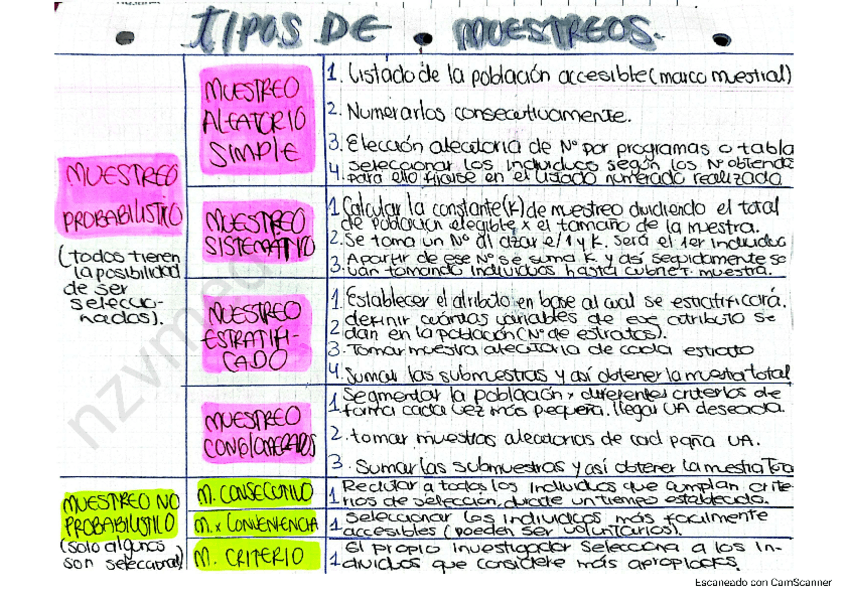 TIPOS DE MUESTREOS.
MUESTREO
PROBABILISTICO
(todos tienen
la posibilidad
de ser
seleccio-
nados).
MUESTREO
ALEATORIO
SIMPLE
1. Listado de la población accesible (marco muestral)
2. Numerarlos consecutivamente.
3. Elección aleatoria de Nº por programas o tabla
4. Seleccionar los individuos según los Nº obtenido
para ello fijarse en el listado numerado realizado.
MUESTREO
SISTEMÁTICO
1. Calcular la constante (K) de muestreo dividiendo el total
de población elegible x el tamaño de la muestra.
2. Se toma un Nº al azar e/ 1 y K. será el 1er individuo
3. Apartir de ese Nº se suma K y así seguidamente se
van tomando individuos hasta cubrir muestra.
MUESTREO
ESTRATIFI-
CADO
1. Establecer el atributo en base al cual se estratificará.
2. definir cuántas variables de ese atributo se
dan en la población (Nº de estratos).
3. Tomar muestra aleatoria de cada estrato
4. Sumar las submuestras y así obtener la muestra total
MUESTREO
CONGLOMERADOS
1. Segmentar la población x diferentes criterios de
forma cada vez más pequeña. llegar UA deseada.
2. tomar muestras aleatorias de cad UA.
3. Sumar las submuestras y así obtener la muestra tota
MUESTREO NO
PROBABILISTICO
(solo algunos
son selecciona)
M. CONSECUTIVO
1. Reclutar a todos los individuos que cumplan crite-
rios de selección, durate un tiempo establecido.
M. x CONVENIENCIA
1. Seleccionar los individuos más facilmente
accesibles (pueden ser voluntarios).
M. CRITERIO
1. El propio investigador selecciona a los in-
dividuos que considere más apropiados.
nzvmed
Escaneado con CamScanner